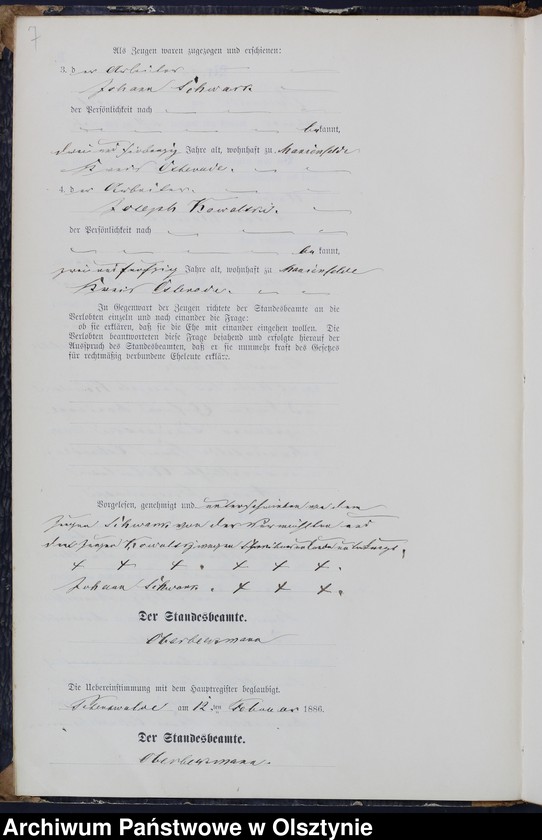 7
Als Zeugen waren zugezogen und erschienen:
3. der Arbeiter
Johann Schwark
der Persönlichkeit nach
bekannt,
dreiundsiebenzig Jahre alt, wohnhaft zu Marienfelde
Kreis Osterode.
4. der Arbeiter.
Joseph Kowalski.
der Persönlichkeit nach
bekannt,
zweiundfünfzig Jahre alt, wohnhaft zu Marienfelde
Kreis Osterode.
In Gegenwart der Zeugen richtete der Standesbeamte an die
Verlobten einzeln und nach einander die Frage:
ob sie erklären, daß sie die Ehe mit einander eingehen wollen. Die
Verlobten beantworteten diese Frage bejahend und erfolgte hierauf der
Ausspruch des Standesbeamten, daß er sie nunmehr kraft des Gesetzes
für rechtmäßig verbundene Eheleute erkläre.
Vorgelesen, genehmigt und unterschrieben von dem
Zeugen Schwark von den Vermählten und
dem Zeugen Kowalski wegen
+ + + . + + + .
Johann Schwark . + + + .
Der Standesbeamte.
Die Uebereinstimmung mit dem Hauptregister beglaubigt.
am 12 ten Februar 1886.
Der Standesbeamte.
Archiwum Państwowe w Olsztynie